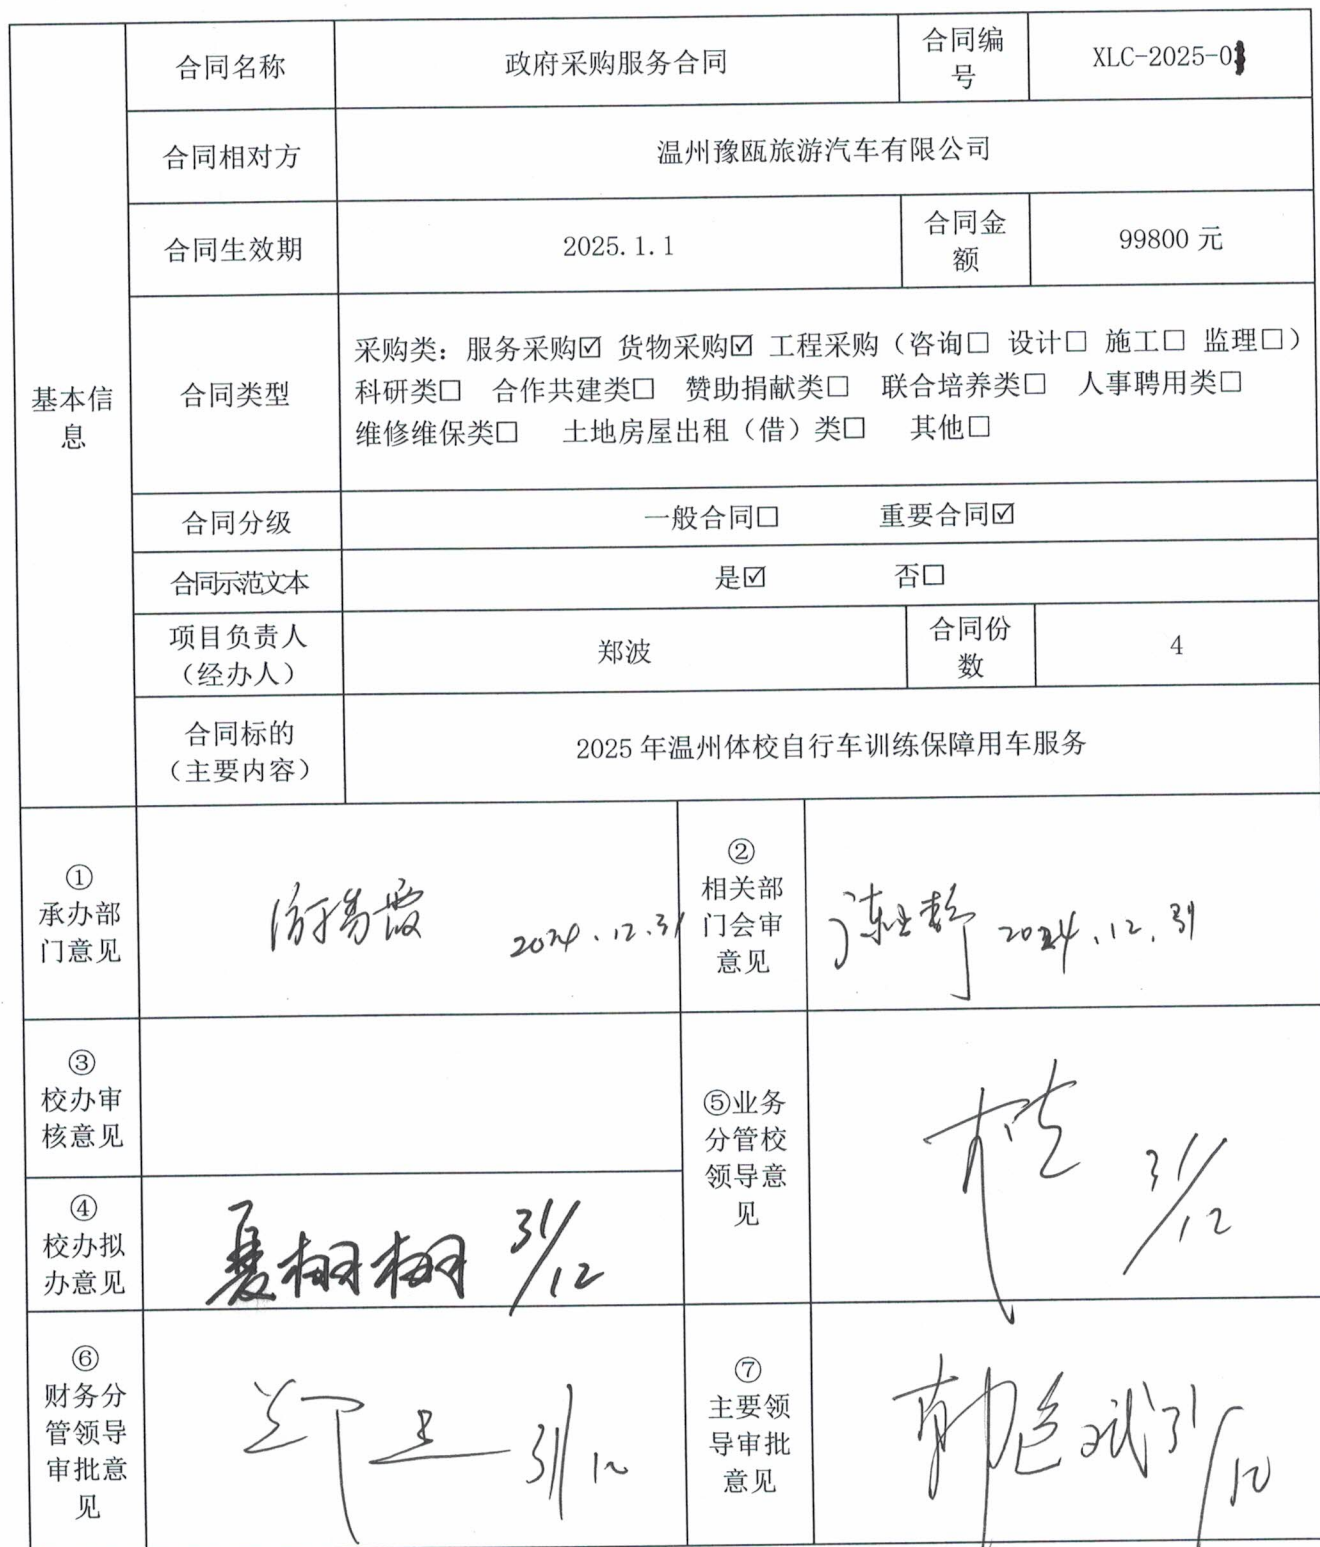 基本信
息
合同名称
政府采购服务合同
合同编
号
XLC-2025-0
合同相对方
温州豫瓯旅游汽车有限公司
合同生效期
2025.1.1
合同金
额
99800 元
合同类型
采购类：服务采购☑ 货物采购☑ 工程采购（咨询□ 设计□ 施工□ 监理□）
科研类□ 合作共建类□ 赞助捐献类□ 联合培养类□ 人事聘用类□
维修维保类□ 土地房屋出租（借）类□ 其他□
合同分级
一般合同□ 重要合同☑
合同示范文本
是☑ 否□
项目负责人
（经办人）
郑波
合同份
数
4
合同标的
（主要内容）
2025 年温州体校自行车训练保障用车服务
①
承办部
门意见
2024.12.31
②
相关部
门会审
意见
2024.12.31
③
校办审
核意见
④
校办拟
办意见
夏栩栩 31/12
⑤业务
分管校
领导意
见
31/12
⑥
财务分
管领导
审批意
见
31/12
⑦
主要领
导审批
意见
31/12